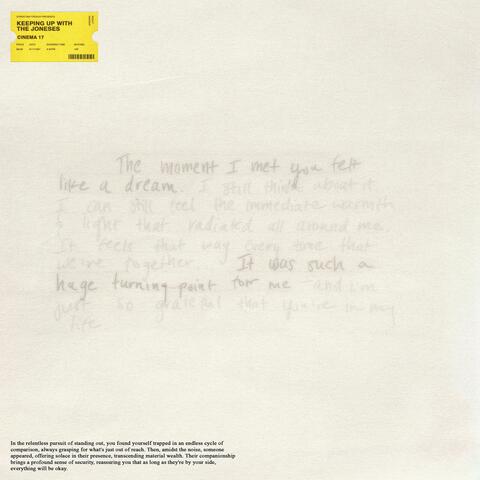 KEEPING UP WITH
THE JONESES
CINEMA 17
The moment I met you felt
like a dream. I still think about it.
I can still feel the immediate warmth
& light that radiated all around me.
It feels that way every time that
we're together. It was such a
huge turning point for me and I'm
just so grateful that you're in my
life
In the relentless pursuit of standing out, you found yourself trapped in an endless cycle of
comparison, always grasping for what's just out of reach. Then, amidst the noise, someone
appeared, offering solace in their presence, transcending material wealth. Their companionship
brings a profound sense of security, reassuring you that as long as they're by your side,
everything will be okay.